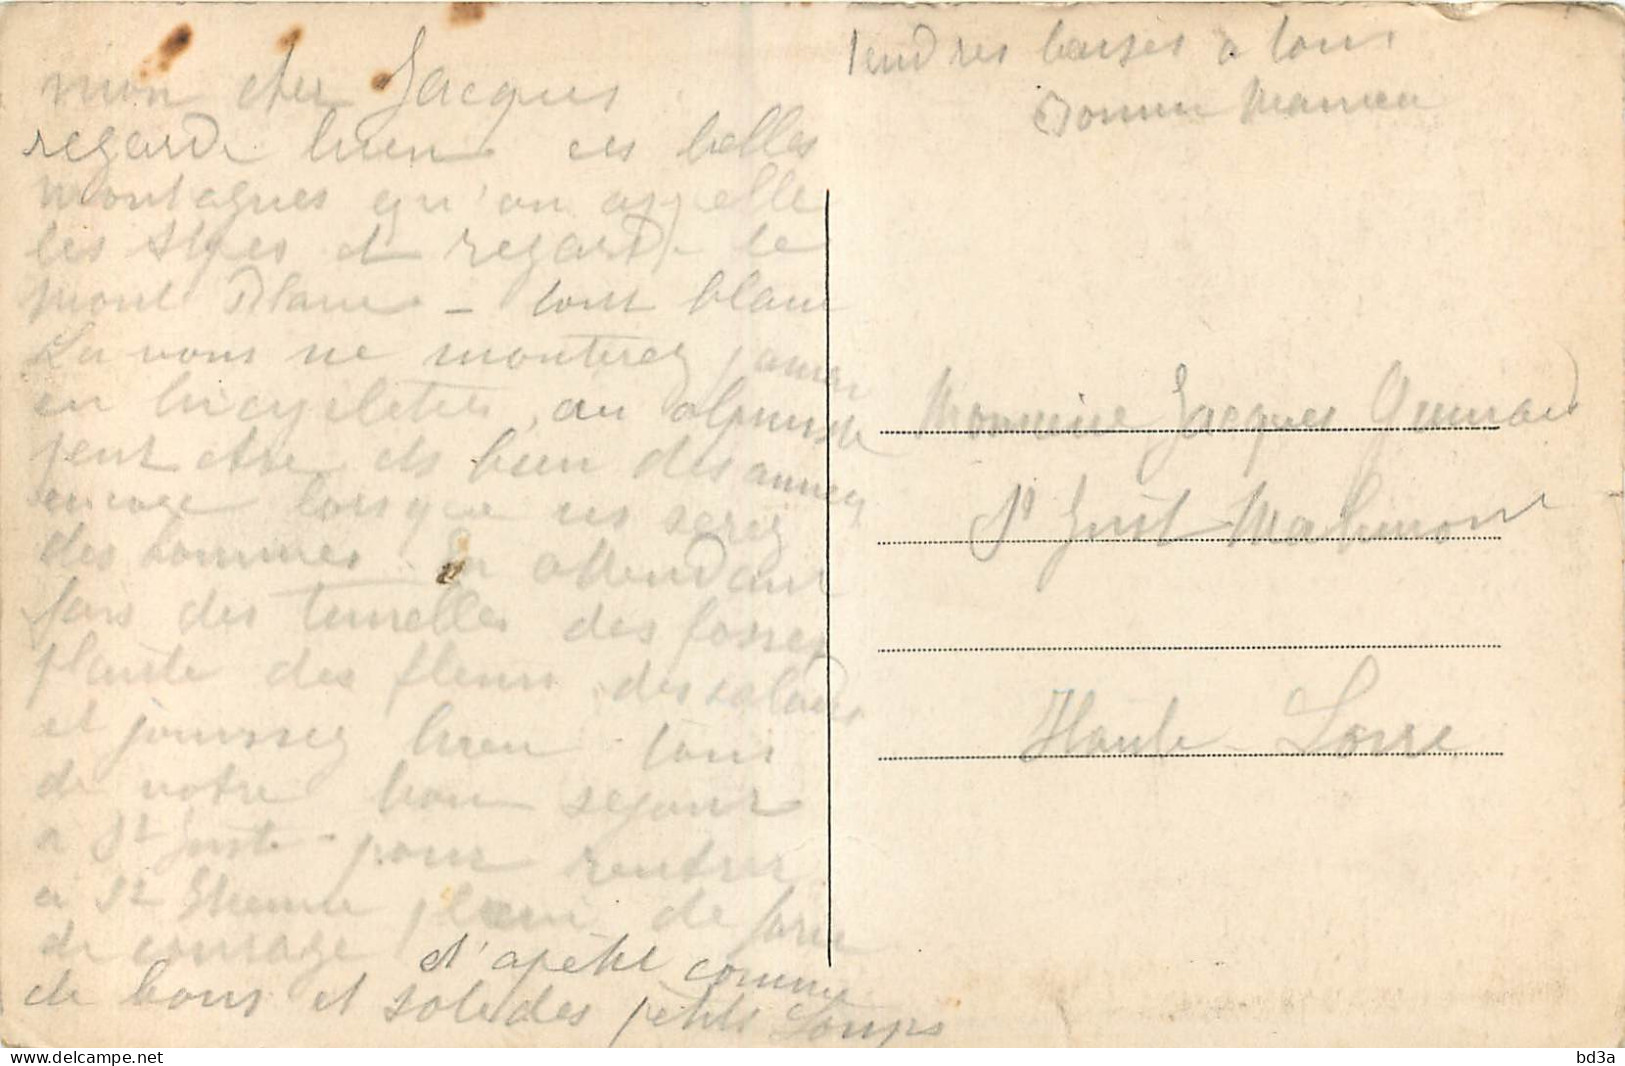 mon cher Jacques
regarde bien ces belles
montagnes qu'on appelle
les Alpes et regarde le
Mont Blanc - tout blanc
La vous ne monterez jamais
en bicyclettes, au alpiniste
peut etre et bien des années
encore lorsque vous serez
des hommes. En attendant
fais des tunelles des fosses
plante des fleurs, des salades
et jouissez bien tous
de votre bon sejour
a St Juste - pour rentrer
a St Etienne plein de force
de courage d'apétit comme
de bons et solides petits Loups
Tendres baises a tous
Bonne Maman
Monsieur Jacques
St Just Malmont
Haute - Loire
bd3a
www.delcampe.net